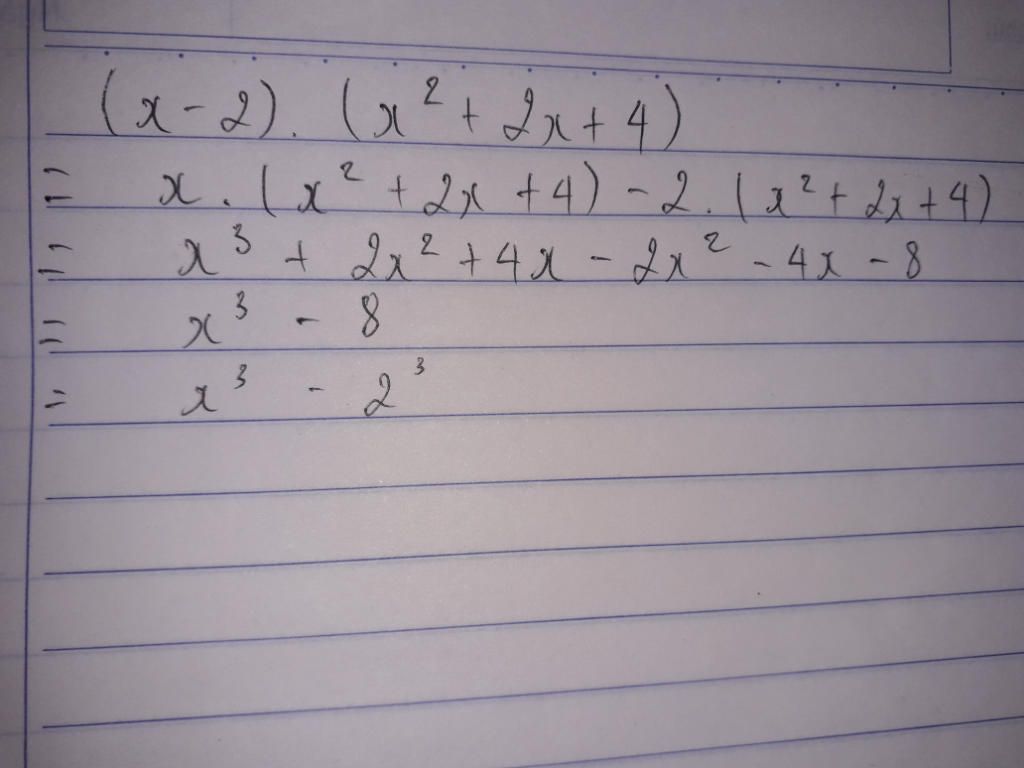 (x - 2). (x² + 2x + 4)
= x . (x² + 2x + 4) - 2. (x² + 2x + 4)
= x³ + 2x² + 4x - 2x² - 4x - 8
= x³ - 8
= x³ - 2³